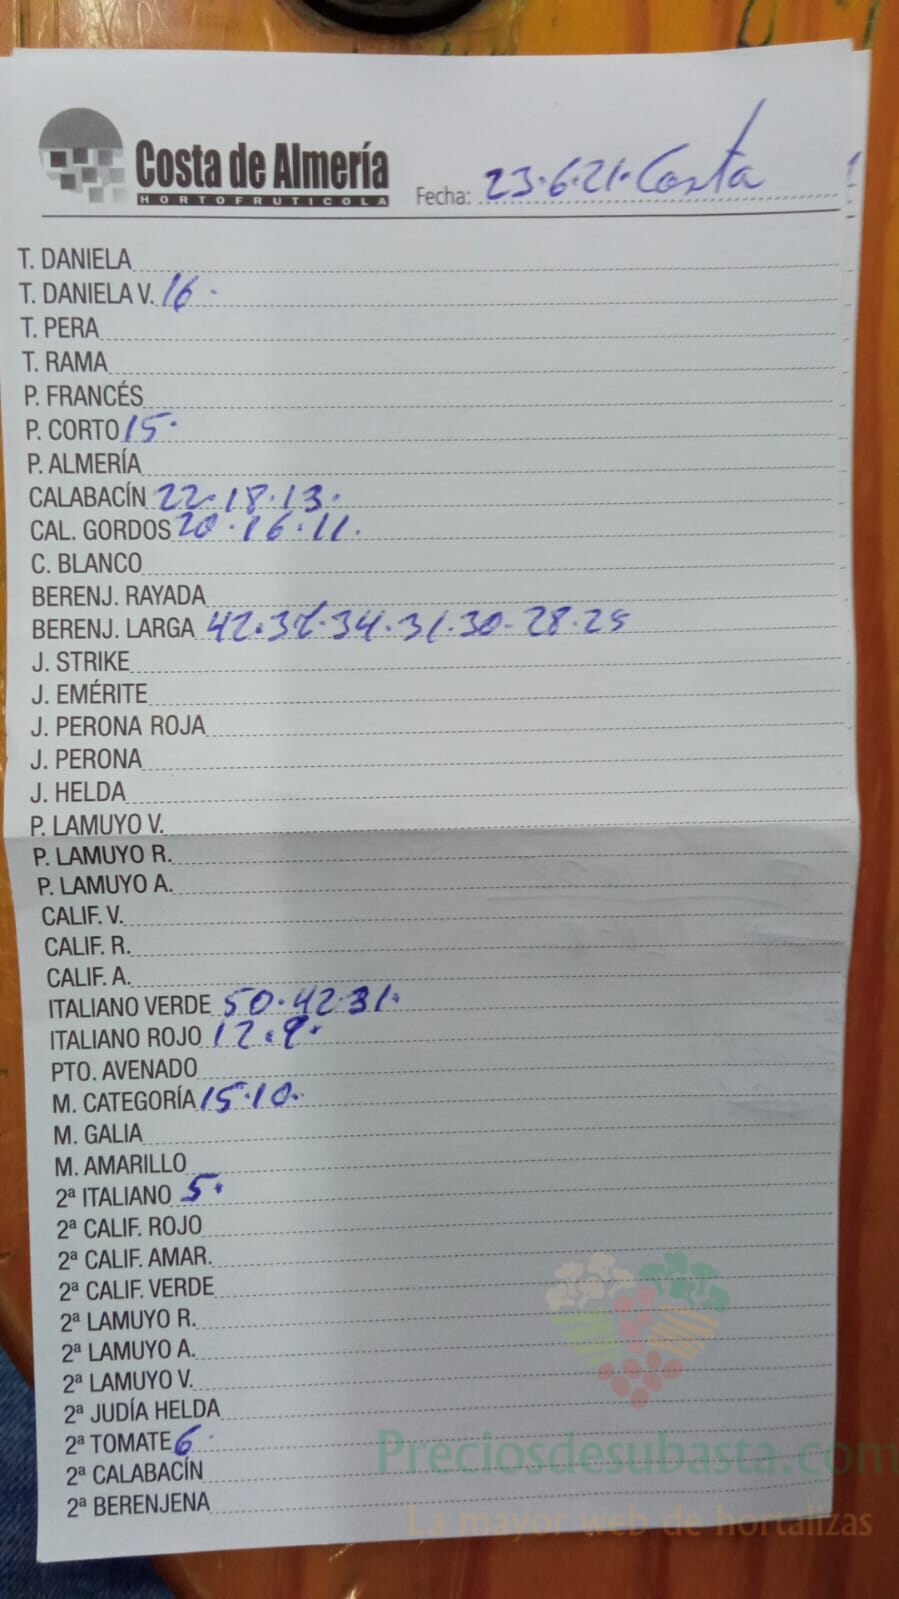 Costa de Almería
HORTOFRUTICOLA
Fecha: 23.6.21. Costa
T. DANIELA
T. DANIELA V. 16.
T. PERA
T. RAMA
P. FRANCÉS
P. CORTO 15.
P. ALMERÍA
CALABACÍN 22.18.13.
CAL. GORDOS 20.16.11.
C. BLANCO
BERENJ. RAYADA
BERENJ. LARGA 42. 34.31.30.28.
J. STRIKE
J. EMÉRITE
J. PERONA ROJA
J. PERONA
J. HELDA
P. LAMUYO V.
P. LAMUYO R.
P. LAMUYO A.
CALIF. V.
CALIF. R.
CALIF. A.
ITALIANO VERDE 50.42.31.
ITALIANO ROJO 12.9.
PTO. AVENADO
M. CATEGORÍA 15.10.
M. GALIA
M. AMARILLO
2ª ITALIANO 5.
2ª CALIF. ROJO
2ª CALIF. AMAR.
2ª CALIF. VERDE
2ª LAMUYO R.
2ª LAMUYO A.
2ª LAMUYO V.
2ª JUDÍA HELDA
2ª TOMATE 6.
2ª CALABACÍN
2ª BERENJENA
Preciosdesubasta.com
La mayor web de hortalizas